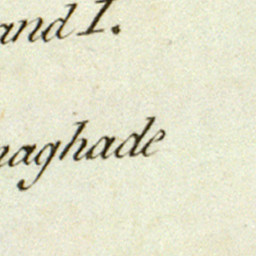 and I.
naghade